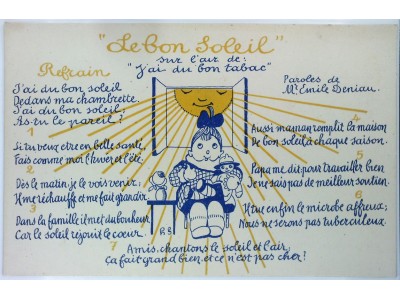 "Le bon Soleil"
sur l'air de:
"J'ai du bon tabac"
Paroles de
Mr Emile Deniau.
Refrain
J'ai du bon soleil
Dedans ma chambrette.
J'ai du bon soleil;
As-tu le pareil?
1
Si tu veux être en belle santé,
Fais comme moi l'hiver et l'été.
2
Dès le matin, je le vois venir.
Il me réchauffe et me fait grandir.
3
Dans la famille il met du bonheur
Car le soleil réjouit le cœur.
4
Aussi maman remplit la maison
De bon soleil à chaque saison.
5
Papa me dit: pour travailler bien
Je ne sais pas de meilleur soutien.
6
Il tue enfin le microbe affreux;
Nous ne serons pas tuberculeux.
7
Amis, chantons le soleil et l'air,
Ça fait grand bien, et ce n'est pas cher!